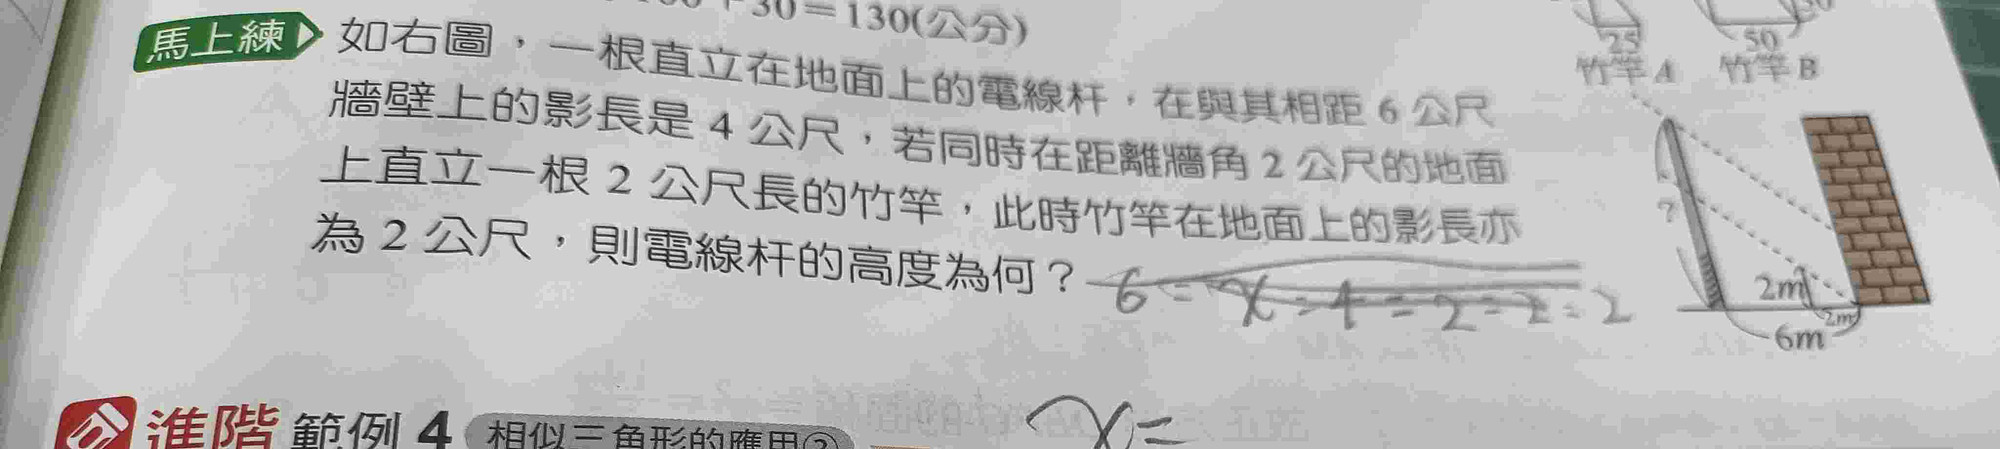 30=130(公分)
25 50
竹竿A 竹竿B
馬上練 如右圖，一根直立在地面上的電線杆，在與其相距 6 公尺
牆壁上的影長是 4 公尺，若同時在距離牆角 2 公尺的地面
上直立一根 2 公尺長的竹竿，此時竹竿在地面上的影長亦
為 2 公尺，則電線杆的高度為何？
6=x-4=2=2=2
?
2m
2m
6m
進階 範例 4 相似三角形的應用②
x=